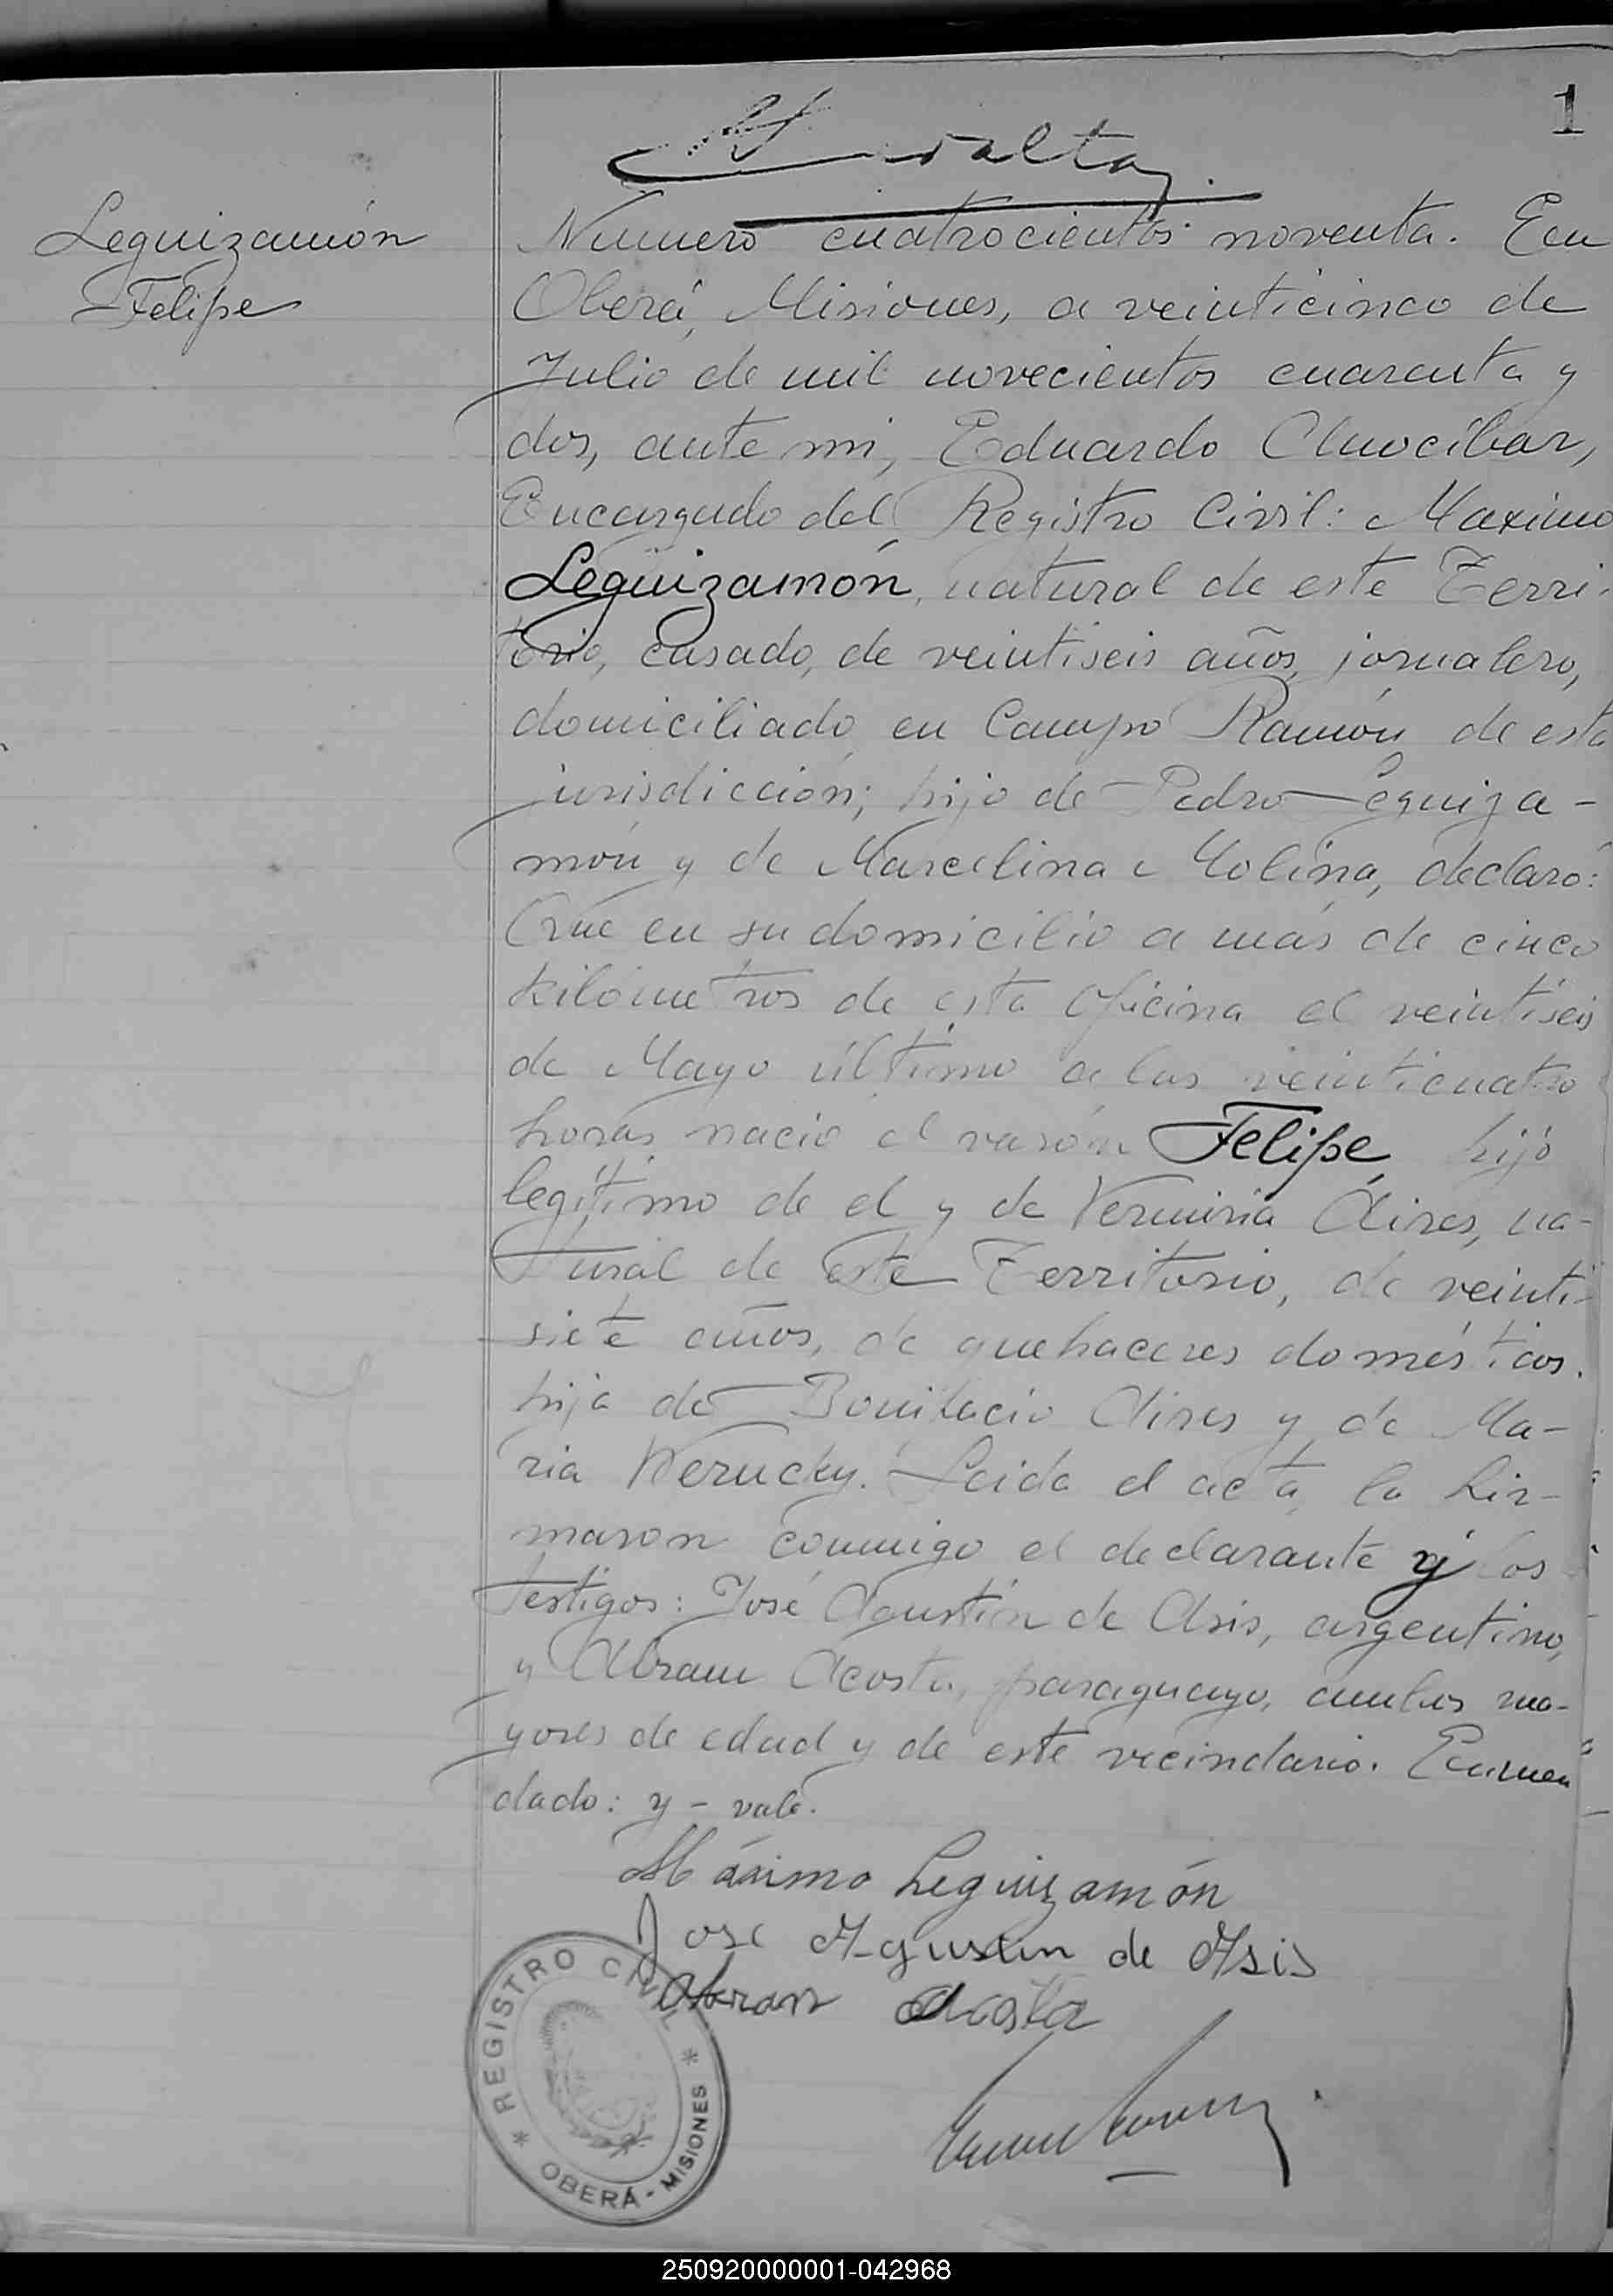 1
Leguizamón
Felipe
Numero cuatrocientos noventa. En
Oberá, Misiones, a veinticinco de
Julio de mil novecientos cuarenta y
dos, ante mi, Eduardo
Encargado del Registro Civil: Maximo
Leguizamón, natural de este Terri-
torio, casado, de veintiseis años, jornalero,
domiciliado en Campo Ramón de esta
jurisdicción; hijo de Pedro Leguiza-
món y de Marcelina Molina, declaró:
Que en su domicilio a más de cinco
kilómetros de esta oficina el veintiseis
de Mayo último a las veinticuatro
horas nació el varón Felipe, hijo
legítimo de el y de Verminia Aires, na-
tural de este Territorio, de veinti-
siete años, de quehaceres domésticos.
hija de Bonifacio Aires y de Ma-
ria Leida el acta, la fir-
maron conmigo el declarante y los
testigos: José Agustin de Asis, argentino,
y Abram Acosta, paraguayo, ambos ma-
yores de edad y de este vecindario. Enmen
dado: y - vale.
Máximo Leguizamón
Jose Agustin de Asis
Abran Acosta
* REGISTRO CIVIL * OBERÁ - MISIONES
250920000001-042968